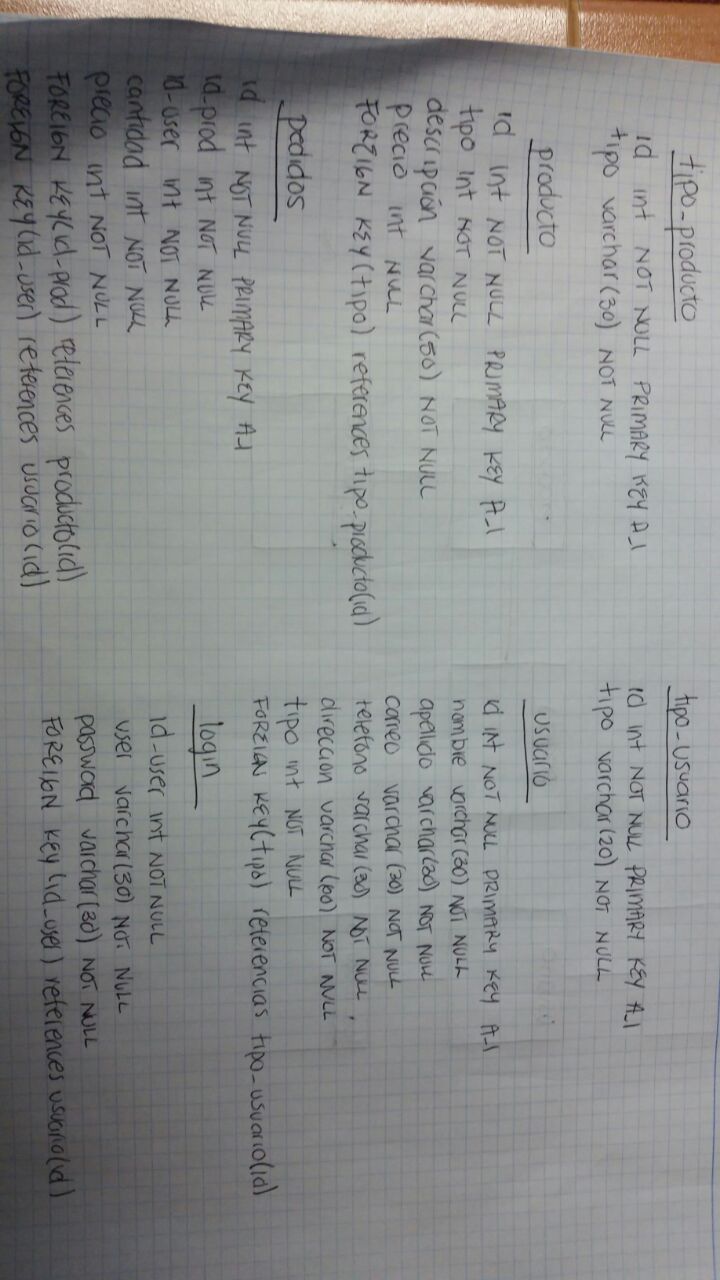 tipo_producto
id int NOT NULL PRIMARY KEY A_I
tipo varchar(30) NOT NULL
producto
id int NOT NULL PRIMARY KEY A_I
tipo int NOT NULL
descripción varchar(50) NOT NULL
precio int NULL
FOREIGN KEY(tipo) references tipo_producto(id)
pedidos
id int NOT NULL PRIMARY KEY A_I
id-prod int NOT NULL
id-user int NOT NULL
cantidad int NOT NULL
precio int NOT NULL
FOREIGN KEY(id-prod) references producto(id)
FOREIGN KEY(id-user) references usuario(id)
tipo_usuario
id int NOT NULL PRIMARY KEY A_I
tipo varchar(20) NOT NULL
usuario
id int NOT NULL PRIMARY KEY A_I
nombre varchar(30) NOT NULL
apellido varchar(30) NOT NULL
correo varchar(30) NOT NULL
telefono varchar(30) NOT NULL
direccion varchar(60) NOT NULL
tipo int NOT NULL
FOREIGN KEY(tipo) referencias tipo_usuario(id)
login
id-user int NOT NULL
user varchar(30) NOT NULL
password varchar(30) NOT NULL
FOREIGN KEY(id_user) references usuario(id)